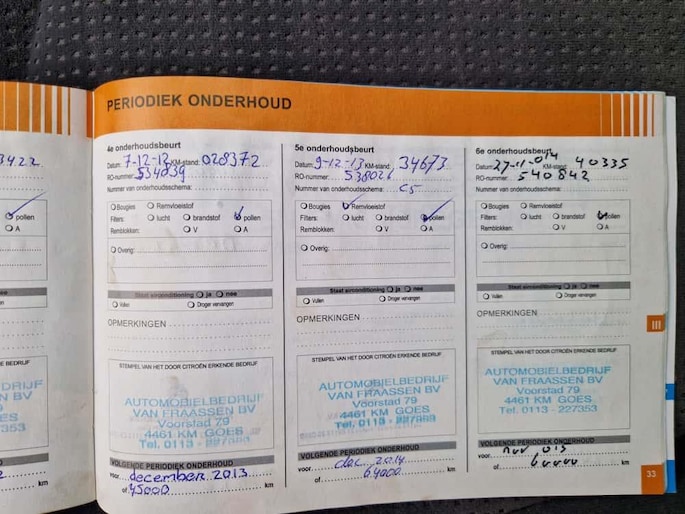 3422
pollen
A
nee
BEDRIJF
353
km
PERIODIEK ONDERHOUD
4e onderhoudsbeurt
Datum: 7-12-12 KM-stand: 028372
RO-nummer: 534039
Nummer van onderhoudsschema:
Bougies Remvloeistof
Filters: lucht brandstof pollen
Remblokken: V A
Overig:
Staat airconditioning ja nee
Vullen Droger vervangen
OPMERKINGEN
STEMPEL VAN HET DOOR CITROËN ERKENDE BEDRIJF
AUTOMOBIELBEDRIJF
VAN FRAASSEN BV
Voorstad 79
4461 KM GOES
Tel. 0113 - 227353
VOLGENDE PERIODIEK ONDERHOUD
voor december 2013
of 45000 km
5e onderhoudsbeurt
Datum: 9-12-13 KM-stand: 34673
RO-nummer: 538026
Nummer van onderhoudsschema: C5
Bougies Remvloeistof
Filters: lucht brandstof pollen
Remblokken: V A
Overig:
Staat airconditioning ja nee
Vullen Droger vervangen
OPMERKINGEN
STEMPEL VAN HET DOOR CITROËN ERKENDE BEDRIJF
AUTOMOBIELBEDRIJF
VAN FRAASSEN BV
Voorstad 79
4461 KM GOES
Tel. 0113 - 227353
VOLGENDE PERIODIEK ONDERHOUD
voor dec 2014
of 64000 km
6e onderhoudsbeurt
Datum: 27-11-014 KM-stand: 40335
RO-nummer: 540842
Nummer van onderhoudsschema:
Bougies Remvloeistof
Filters: lucht brandstof pollen
Remblokken: V A
Overig:
Staat airconditioning ja nee
Vullen Droger vervangen
OPMERKINGEN
STEMPEL VAN HET DOOR CITROËN ERKENDE BEDRIJF
AUTOMOBIELBEDRIJF
VAN FRAASSEN BV
Voorstad 79
4461 KM GOES
Tel. 0113 - 227353
VOLGENDE PERIODIEK ONDERHOUD
voor nov 015
of km
III
33